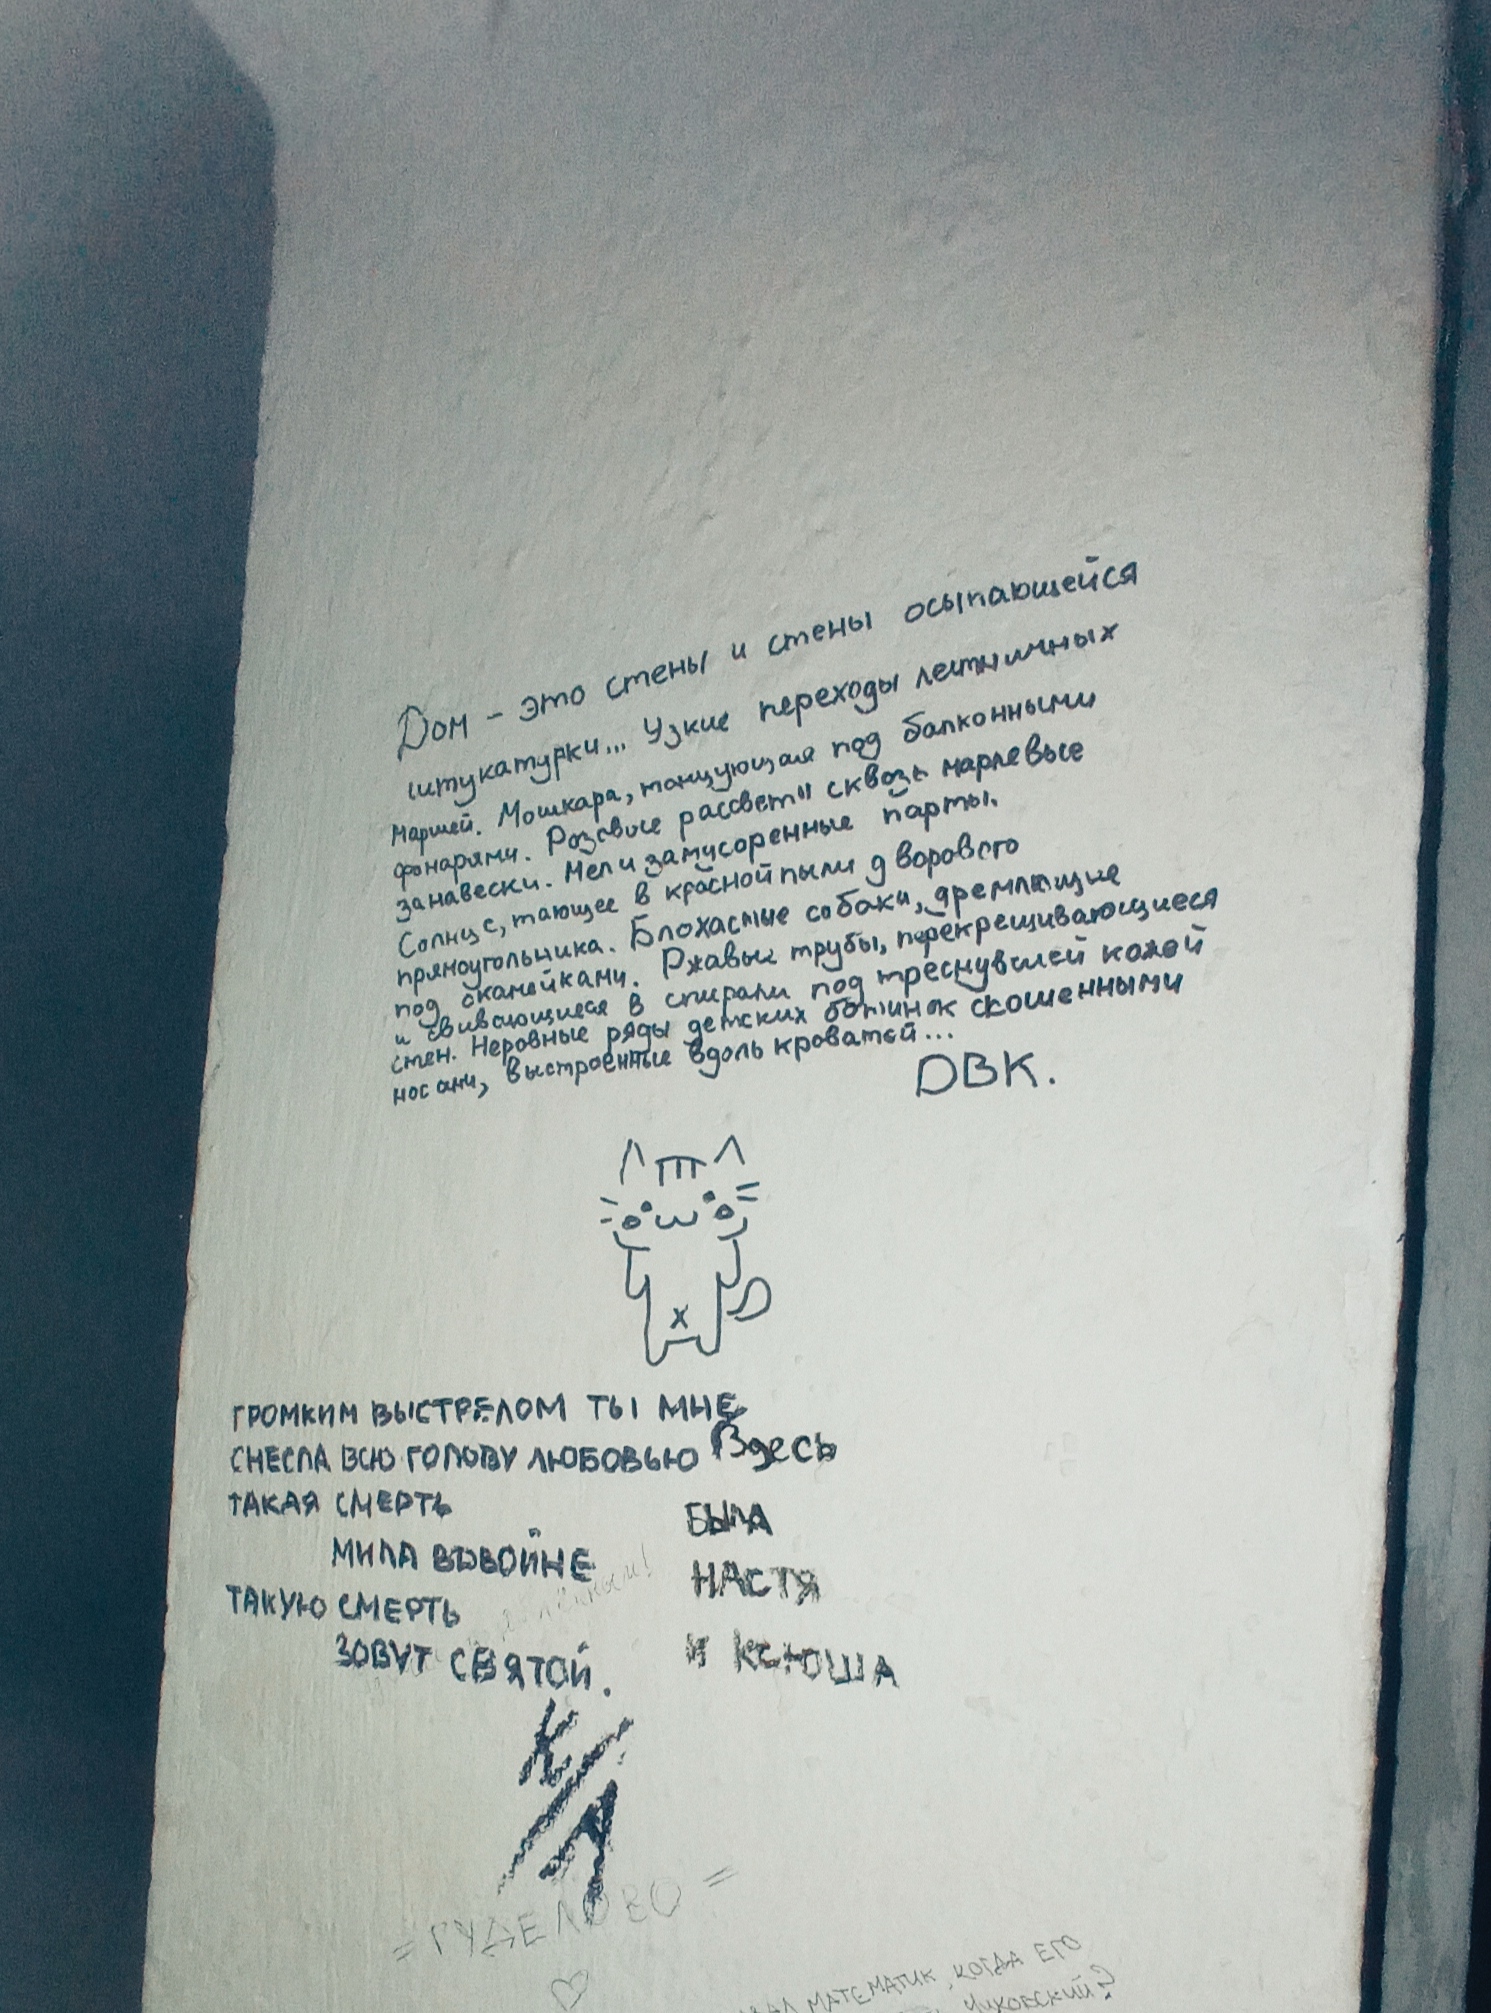 Дом – это стены и стены осыпающейся
штукатурки... Узкие переходы лестничных
маршей. Мошкара, танцующая под балконными
фонарями. Розовые рассветы сквозь марлевые
занавески. Мел и замусоренные парты.
Солнце, тающее в красной пыли дворового
прямоугольника. Блохастые собаки, дремлющие
под скамейками. Ржавые трубы, перекрещивающиеся
и свивающиеся в спирали под треснувшей кожей
стен. Неровные ряды детских ботинок скошенными
носами, выстроенные вдоль кроватей...
ДВК.
ГРОМКИМ ВЫСТРЕЛОМ ТЫ МНЕ
СНЕСЛА ВСЮ ГОЛОВУ ЛЮБОВЬЮ
ТАКАЯ СМЕРТЬ
МИЛА ВЪВОЙНЕ
ТАКУЮ СМЕРТЬ
ЗОВУТ СВЯТОЙ.
Здесь
БЫЛА
НАСТЯ
И КСЮША
= ГУДЕЛОВО =
МАТЕМАТИК, КОГДА ЕГО
ЧУКОВСКИЙ?